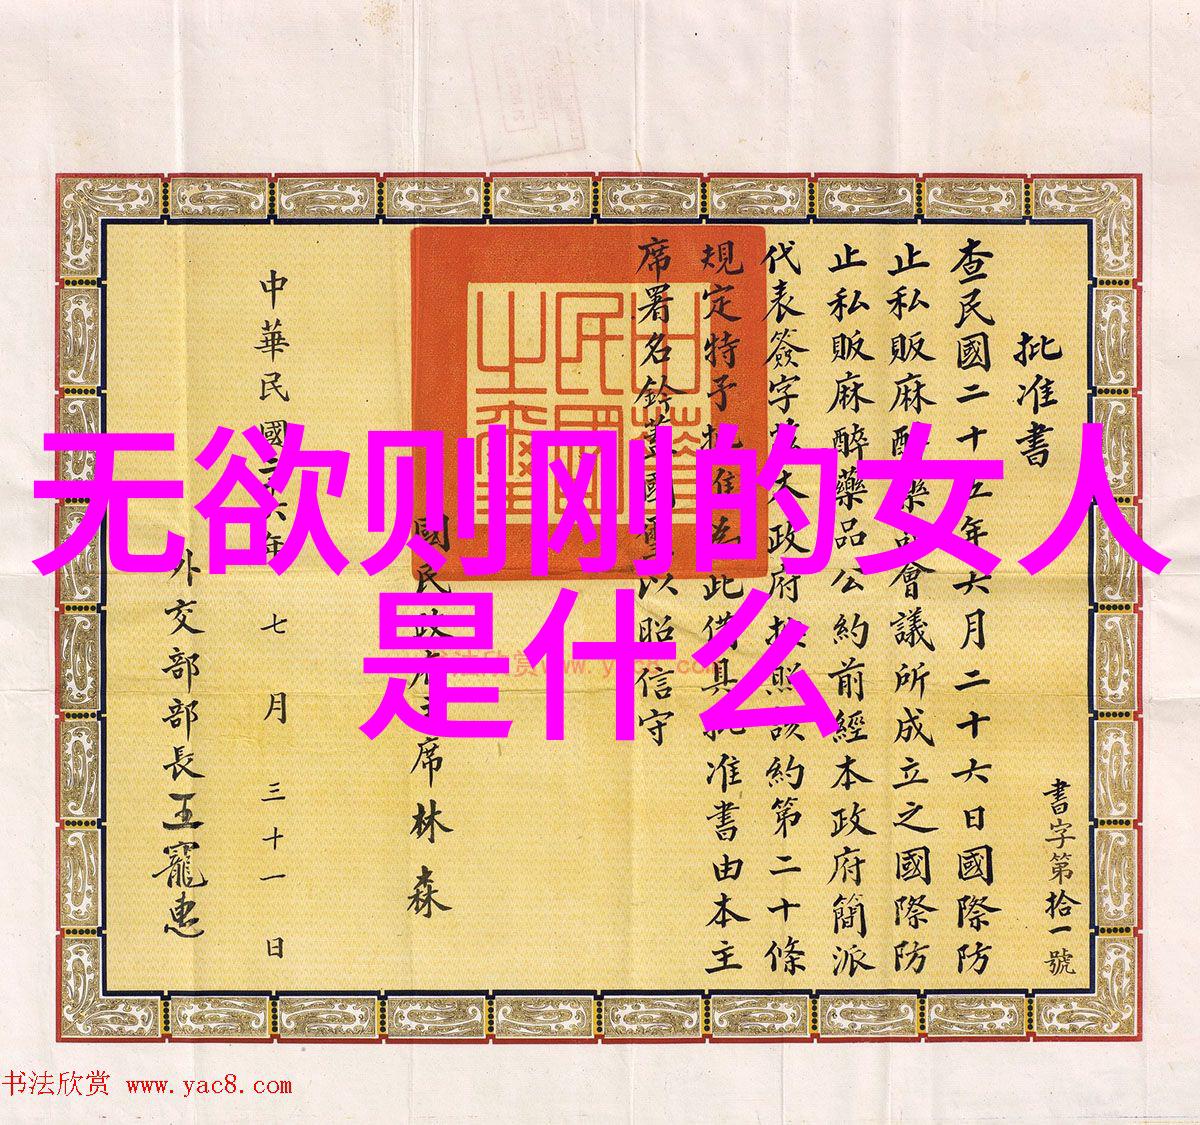 无欲则刚的女人
是什么
書字第拾一號
批准書
查民國二十五年六月二十六日國際防
止私販麻醉藥品會議所成立之國際防
止私販麻醉藥品公約前經本政府簡派
代表簽字茲大政府按照該約第二十條
規定特予批准為此備具批准書由本主
席署名鈐蓋國璽以昭信守
中華民國之璽
國民政府主席林森
中華民國二十六年七月三十一日
外交部部長王寵惠
书法欣赏 www.yac8.com